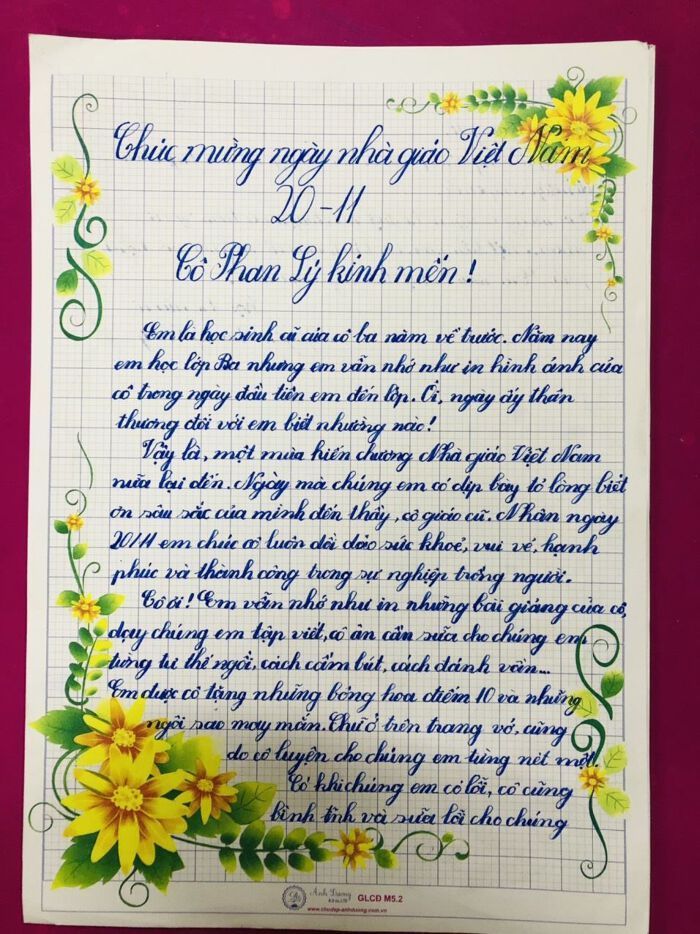 Chúc mừng ngày nhà giáo Việt Nam
20-11
Cô Phan Lý kính mến !
Em là học sinh cũ của cô ba năm về trước. Năm nay
em học lớp Ba nhưng em vẫn nhớ như in hình ảnh của
cô trong ngày đầu tiên em đến lớp. Ôi, ngày ấy thân
thương đối với em biết nhường nào!
Vậy là, một mùa hiến chương Nhà giáo Việt Nam
nữa lại đến. Ngày mà chúng em có dịp bày tỏ lòng biết
ơn sâu sắc của mình đến thầy, cô giáo cũ. Nhân ngày
20/11 em chúc cô luôn dồi dào sức khoẻ, vui vẻ, hạnh
phúc và thành công trong sự nghiệp trồng người.
Cô ơi! Em vẫn nhớ như in những bài giảng của cô,
dạy chúng em tập viết, cô ân cần sửa cho chúng em
từng tư thế ngồi, cách cầm bút, cách đánh vần...
Em được cô tặng những bông hoa điểm 10 và những
ngôi sao may mắn. Chữ ở trên trang vở, cũng
do cô luyện cho chúng em từng nét một.
Có khi chúng em có lỗi, cô cũng
bình tĩnh và sữa lỗi cho chúng
Ánh Dương
GLCĐ M5.2
www.chudep-anhduong.com.vn